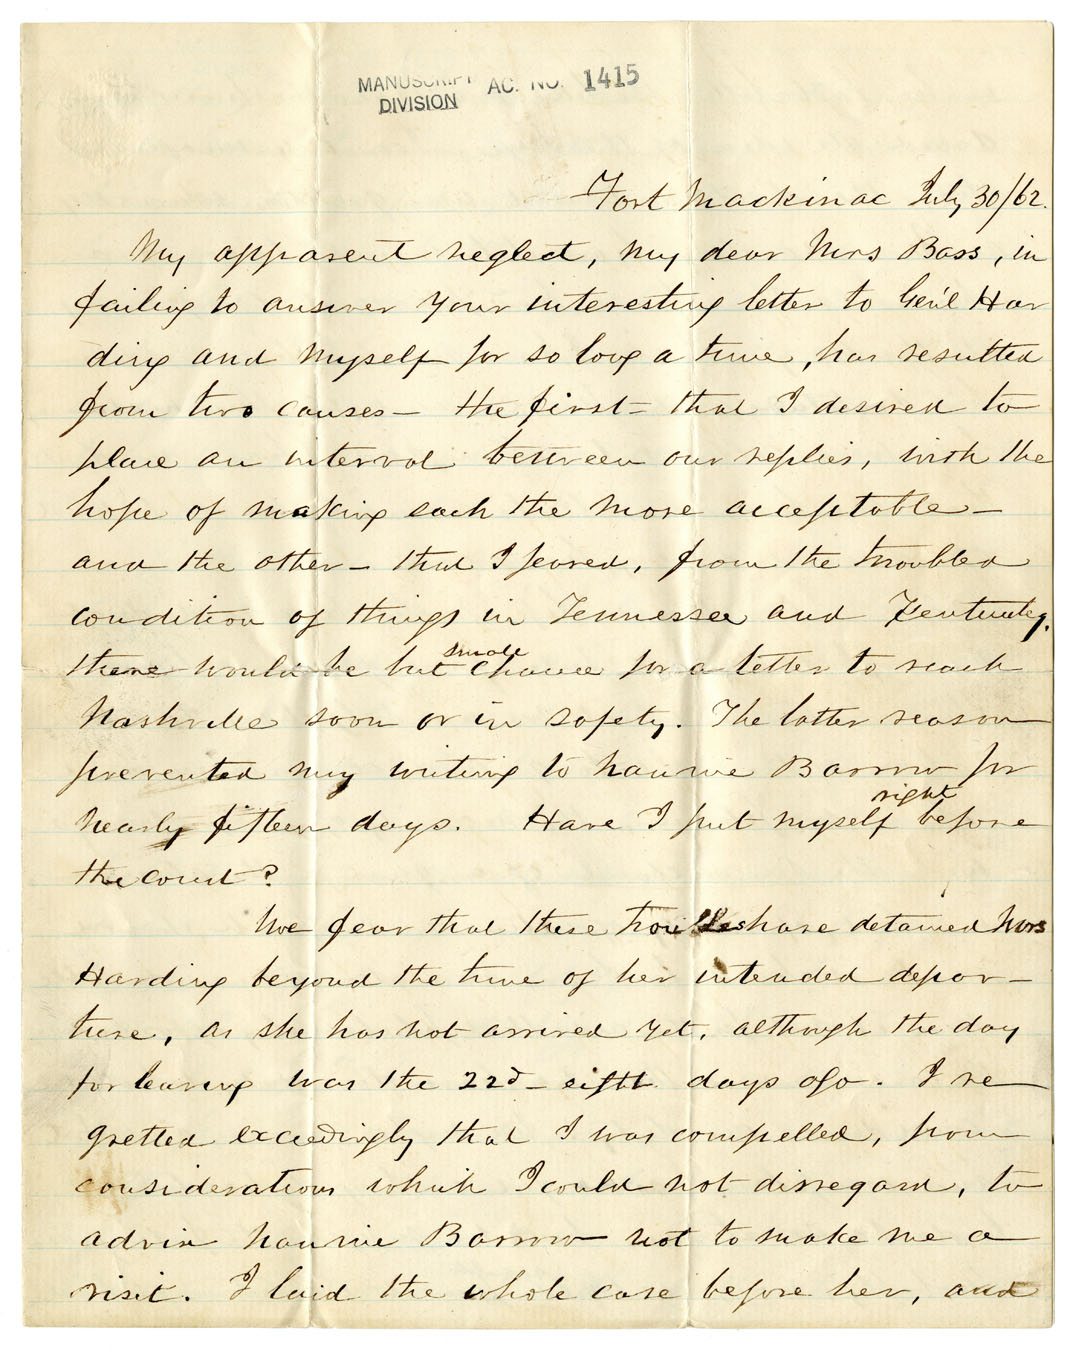 MANUSCRIPT AC. NO. 1415
DIVISION
Fort Mackinac July 30/62.
My apparent neglect, my dear Mrs Bass, in
failing to answer your interesting letter to Gen'l Har
ding and myself for so long a time, has resulted
from two causes – the first – that I desired to
place an interval between our replies, with the
hope of making each the more acceptable –
and the other – that I feared, from the troubled
condition of things in Tennessee and Kentucky,
there would be but small chance for a letter to reach
Nashville soon or in safety. The latter reason
prevented my writing to Nannie Barrow for
nearly fifteen days. Have I put myself right before
the court?
We fear that these troubles have detained Mrs
Harding beyond the time of her intended depar-
ture, as she has not arrived yet, although the day
for leaving was the 22d – eight days ago. I re
gretted exceedingly that I was compelled, from
considerations which I could not disregard, to
advise Nannie Barrow not to make me a
visit. I laid the whole case before her, and